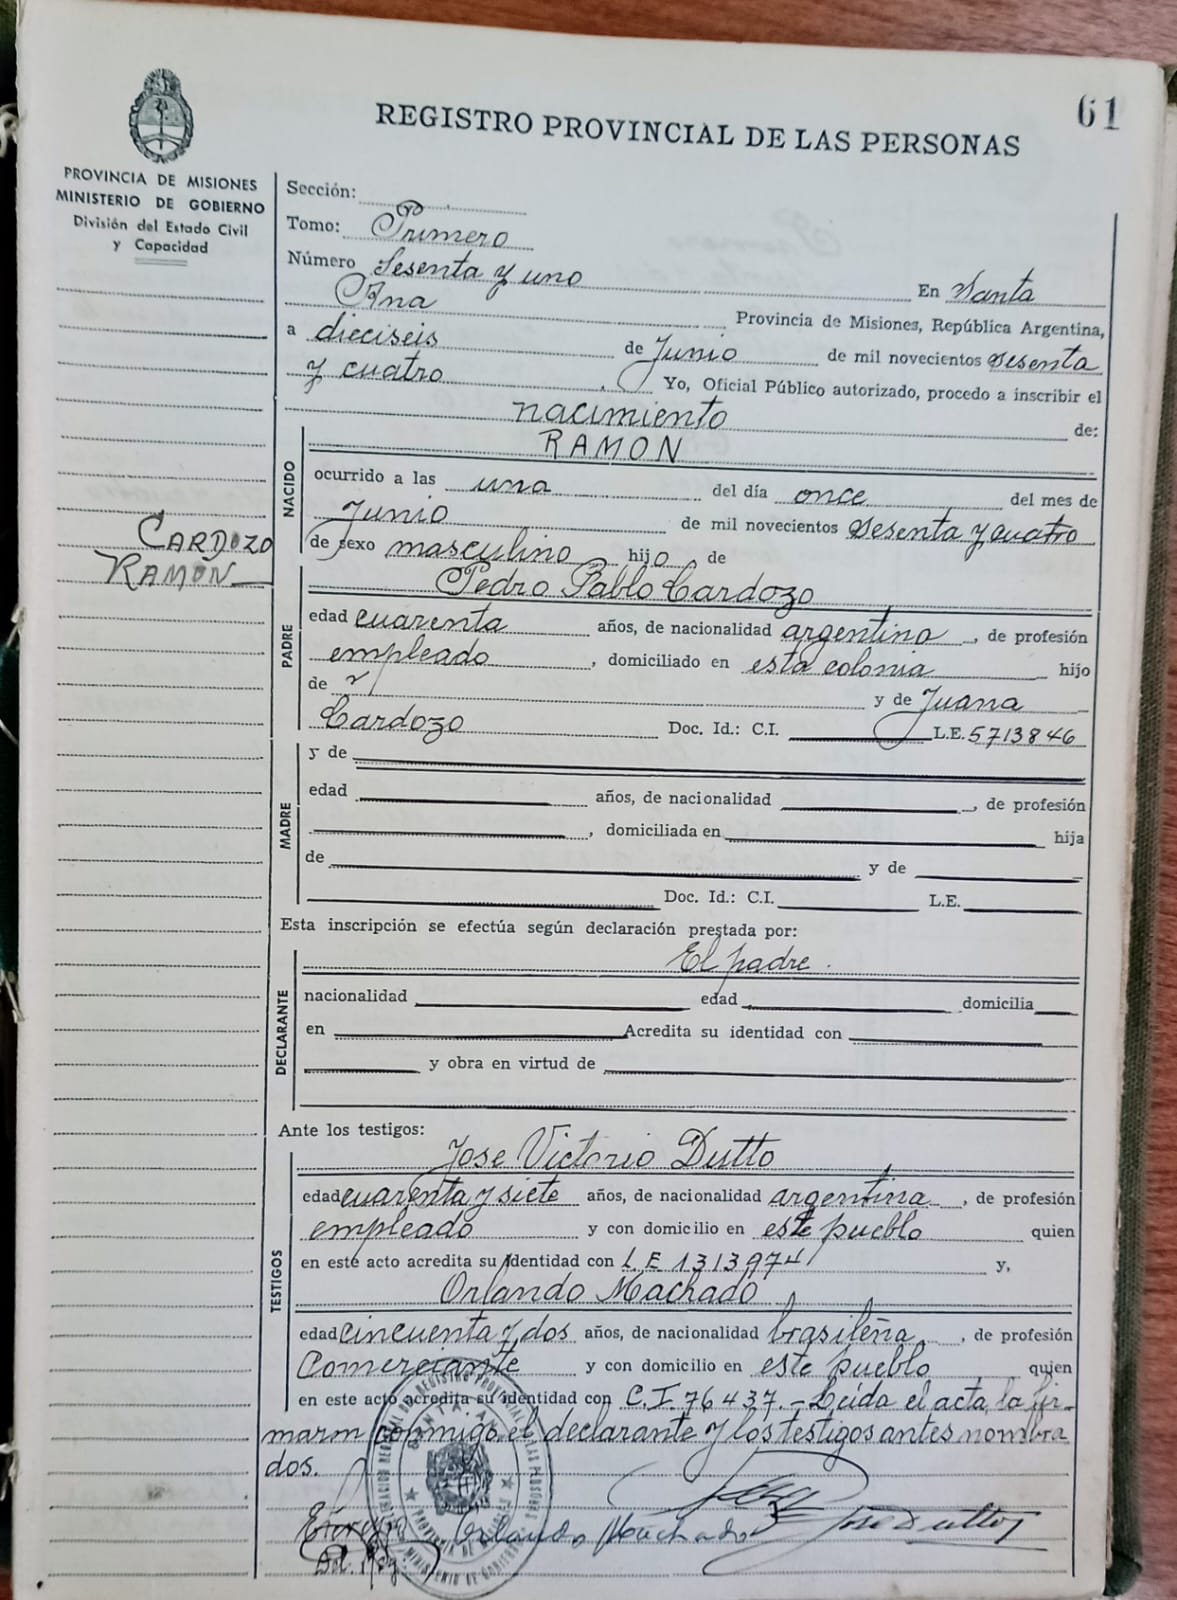 61
REGISTRO PROVINCIAL DE LAS PERSONAS
PROVINCIA DE MISIONES
MINISTERIO DE GOBIERNO
División del Estado Civil
y Capacidad
CARDOZO
RAMÓN
Sección:
Tomo: Primero
Número Sesenta y uno En Santa
Ana Provincia de Misiones, República Argentina,
a dieciseis de Junio de mil novecientos sesenta
y cuatro. Yo, Oficial Público autorizado, procedo a inscribir el
nacimiento de:
NACIDO
RAMON
ocurrido a las una del día once del mes de
Junio de mil novecientos sesenta y cuatro
de sexo masculino hijo de
PADRE
Pedro Pablo Cardozo
edad cuarenta años, de nacionalidad argentino, de profesión
empleado, domiciliado en esta colonia hijo
de y de Juana
Cardozo Doc. Id.: C.I. L.E. 5713846
MADRE
y de
edad años, de nacionalidad , de profesión
, domiciliada en hija
de y de
Doc. Id.: C.I. L.E.
Esta inscripción se efectúa según declaración prestada por:
DECLARANTE
El padre.
nacionalidad edad domicilia
en Acredita su identidad con
y obra en virtud de
Ante los testigos:
TESTIGOS
Jose Victorio Dutto
edad cuarenta y siete años, de nacionalidad argentina, de profesión
empleado y con domicilio en este pueblo quien
en este acto acredita su identidad con L.E 1313974 y,
Orlando Machado
edad cincuenta y dos años, de nacionalidad brasileña, de profesión
Comerciante y con domicilio en este pueblo quien
en este acto acredita su identidad con C.I. 76437.- Leida el acta, la fir-
marm conmigo, el declarante y los testigos antes nombra
dos.
Orlando Machado
Jose Dutto